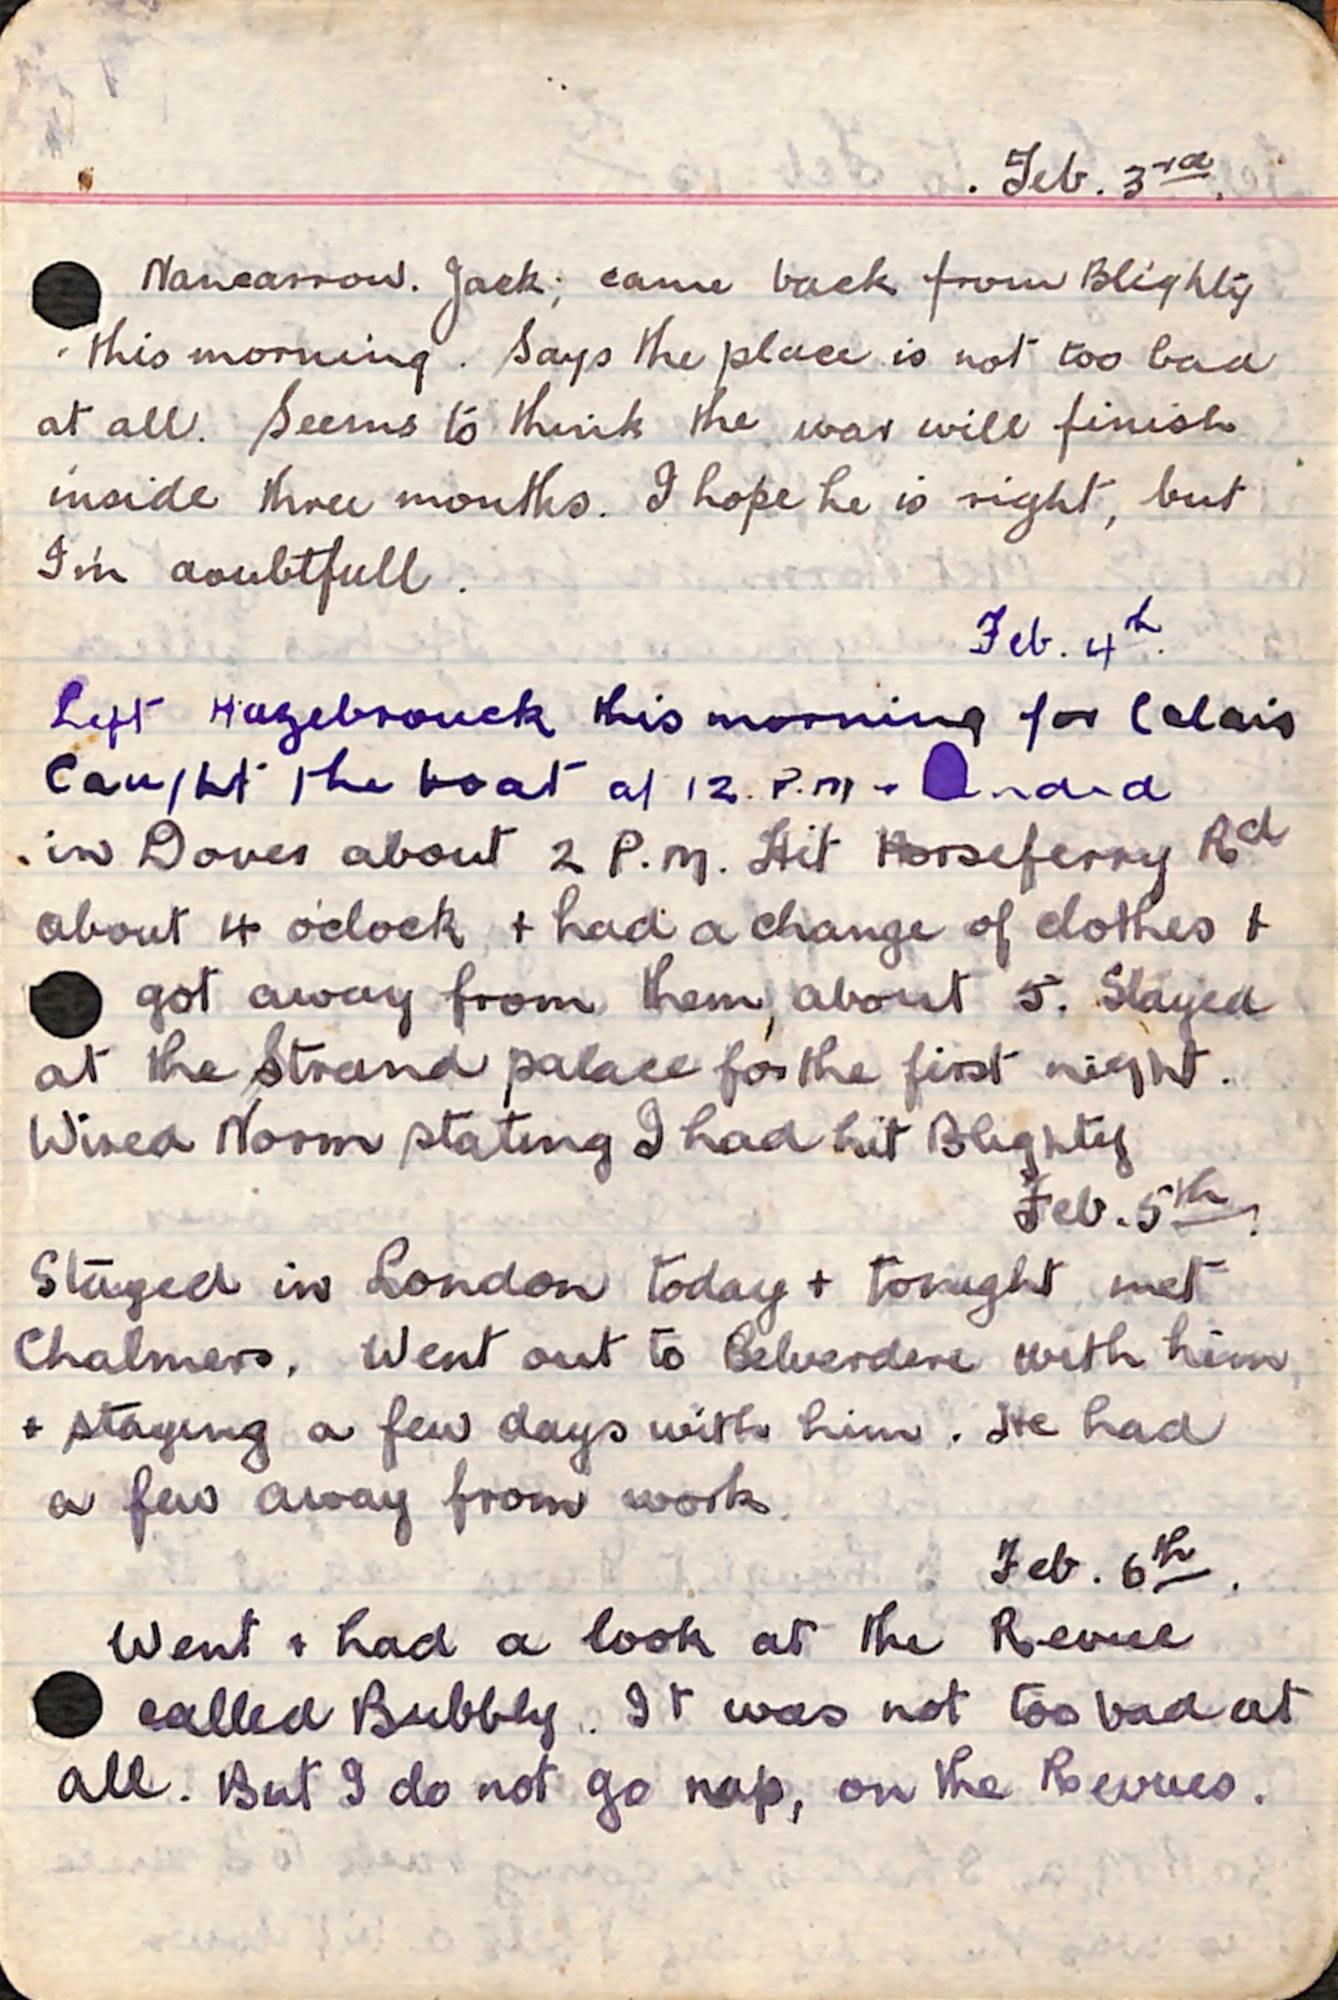 . Feb. 3rd.
Nancarrow. Jack; came back from Blighty
this morning. Says the place is not too bad
at all. Seems to think the war will finish
inside three months. I hope he is right, but
I'm doubtfull.
Feb. 4th.
Left Hazebrouck this morning for Calais
Caught the boat at 12. P.M +
in Dover about 2 P.M. Hit Horseferry Rd
about 4 o'clock, + had a change of clothes +
got away from them, about 5. Stayed
at the Strand palace for the first night.
Wired Norm stating I had hit Blighty
Feb. 5th.
Stayed in London today + tonight met
Chalmers. Went out to Belverdere with him,
+ staying a few days with him. He had
a few away from work.
Feb. 6th.
Went + had a look at the Revue
called Bubbly. It was not too bad at
all. But I do not go nap, on the Revues.